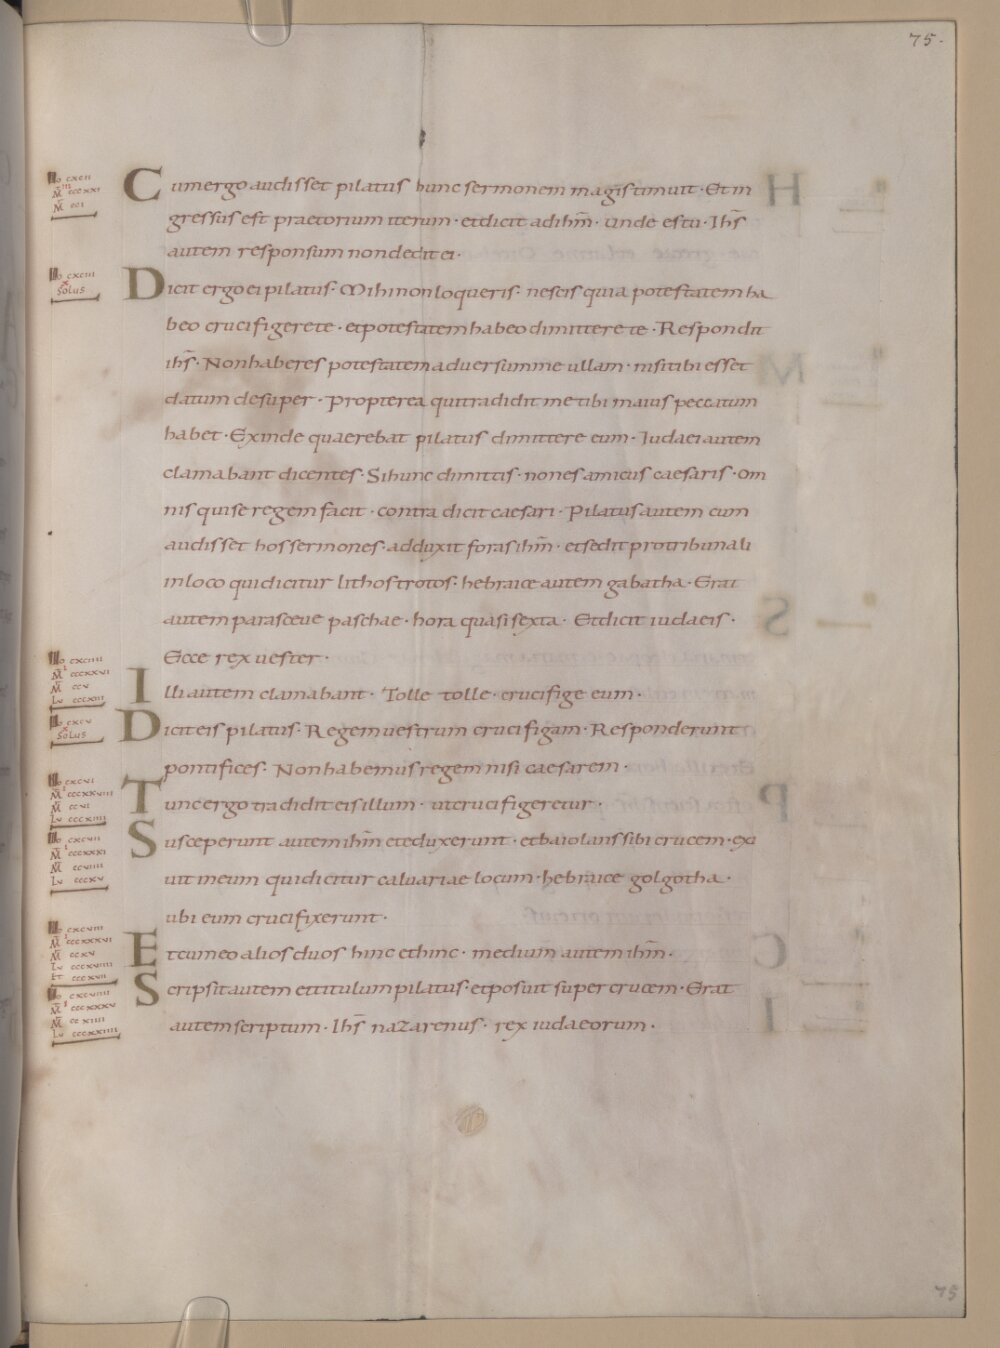 75.
Cum ergo audisset pilatus hunc sermonem magis timuit · Et in
gressus est praetorium iterum · et dicit ad ihm̄ · unde es tu · Ihs̄
autem responsum non dedit ei ·
Dicit ergo ei pilatus · Mihi non loqueris · nescis quia potestatem ha
beo crucifigere te · et potestatem habeo dimittere te · Respondit
ihs̄ · Non haberes potestatem aduersum me ullam · nisi tibi esset
datum desuper · Propterea qui tradidit me tibi maius peccatum
habet · Exinde quaerebat pilatus dimittere eum · Iudaei autem
clamabant dicentes · Si hunc dimittis · non es amicus caesaris · om
nis qui se regem facit · contradicit caesari · Pilatus autem cum
audisset hos sermones · adduxit foras ihm̄ · et sedit pro tribunali
in loco qui dicitur lithostrotos · hebraice autem gabatha · Erat
autem parasceue paschae · hora quasi sexta · Et dicit iudaeis ·
Ecce rex uester ·
Illi autem clamabant · Tolle tolle · crucifige eum ·
Dicit eis pilatus · Regem uestrum crucifigam · Responderunt
pontifices · Non habemus regem nisi caesarem ·
Tunc ergo tradidit eis illum · ut crucifigeretur ·
Susceperunt autem ihm̄ et eduxerunt · et baiolans sibi crucem · exi
uit in eum qui dicitur caluariae locum · hebraice golgotha ·
ubi eum crucifixerunt ·
Et cum eo alios duos hinc et hinc · medium autem ihm̄ ·
Scripsit autem et titulum pilatus · et posuit super crucem · Erat
autem scriptum · Ihs̄ nazarenus · rex iudaeorum ·
solus
solus
75